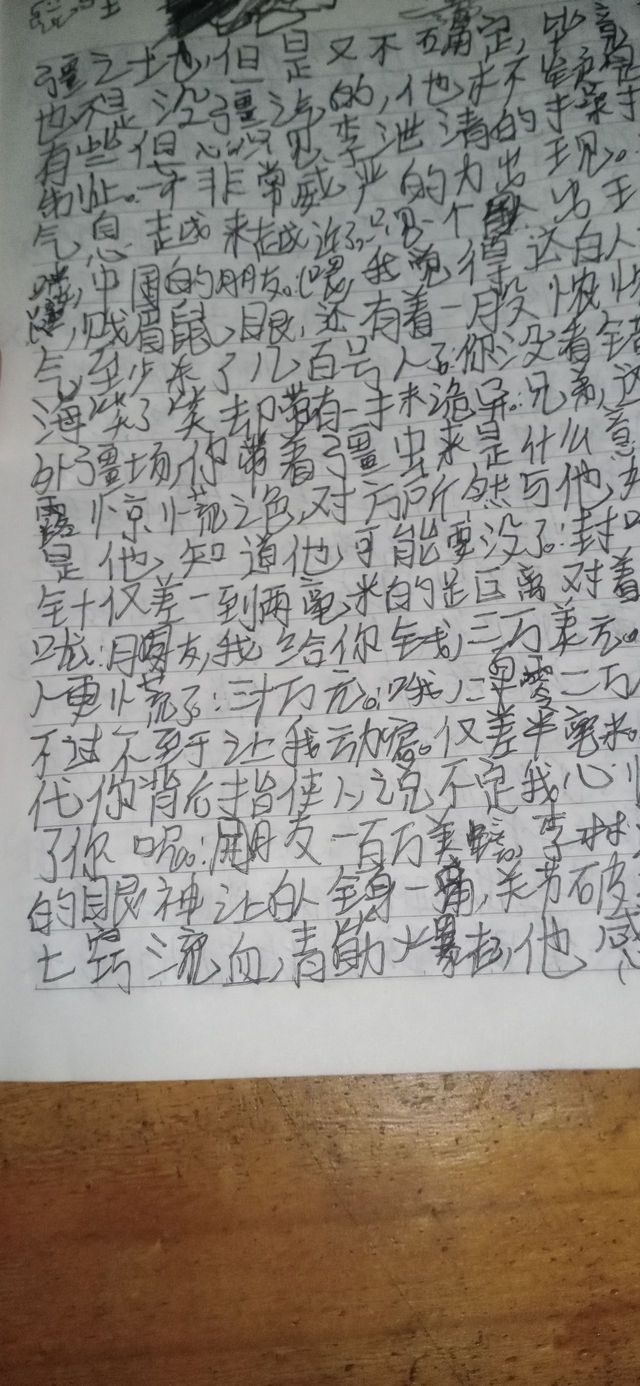 疆之土地,但是又不确定,毕竟
也不是没疆气的,他才不
有些但心,只见李海清的手
制止。等非常威严的力出现。
气息越来越近了。只见一个 出
中国的朋友。(嘿,我觉得这白人
,贼眉鼠眼,还有着一股浓
气至少来了几百号人了。你没看错
海笑了笑却带有一手来诡异。:兄弟,这
外疆场,你带着疆虫来是什么意
露惊慌之色,对方所然与他,
是他,知道他可能要没了。:封
针仅差一到两毫米的是巨离对着
咙:朋友,我给你钱,三万美元。
人更慌了:三十万元。:哦,二 零二万
不过不至于让我动容。仅差半毫米。
代你背后指使人,说不定我心
了你呢。:朋友一百万美
的眼神让白人全身一痛,关节破
七窍流血,青筋爆起,他感